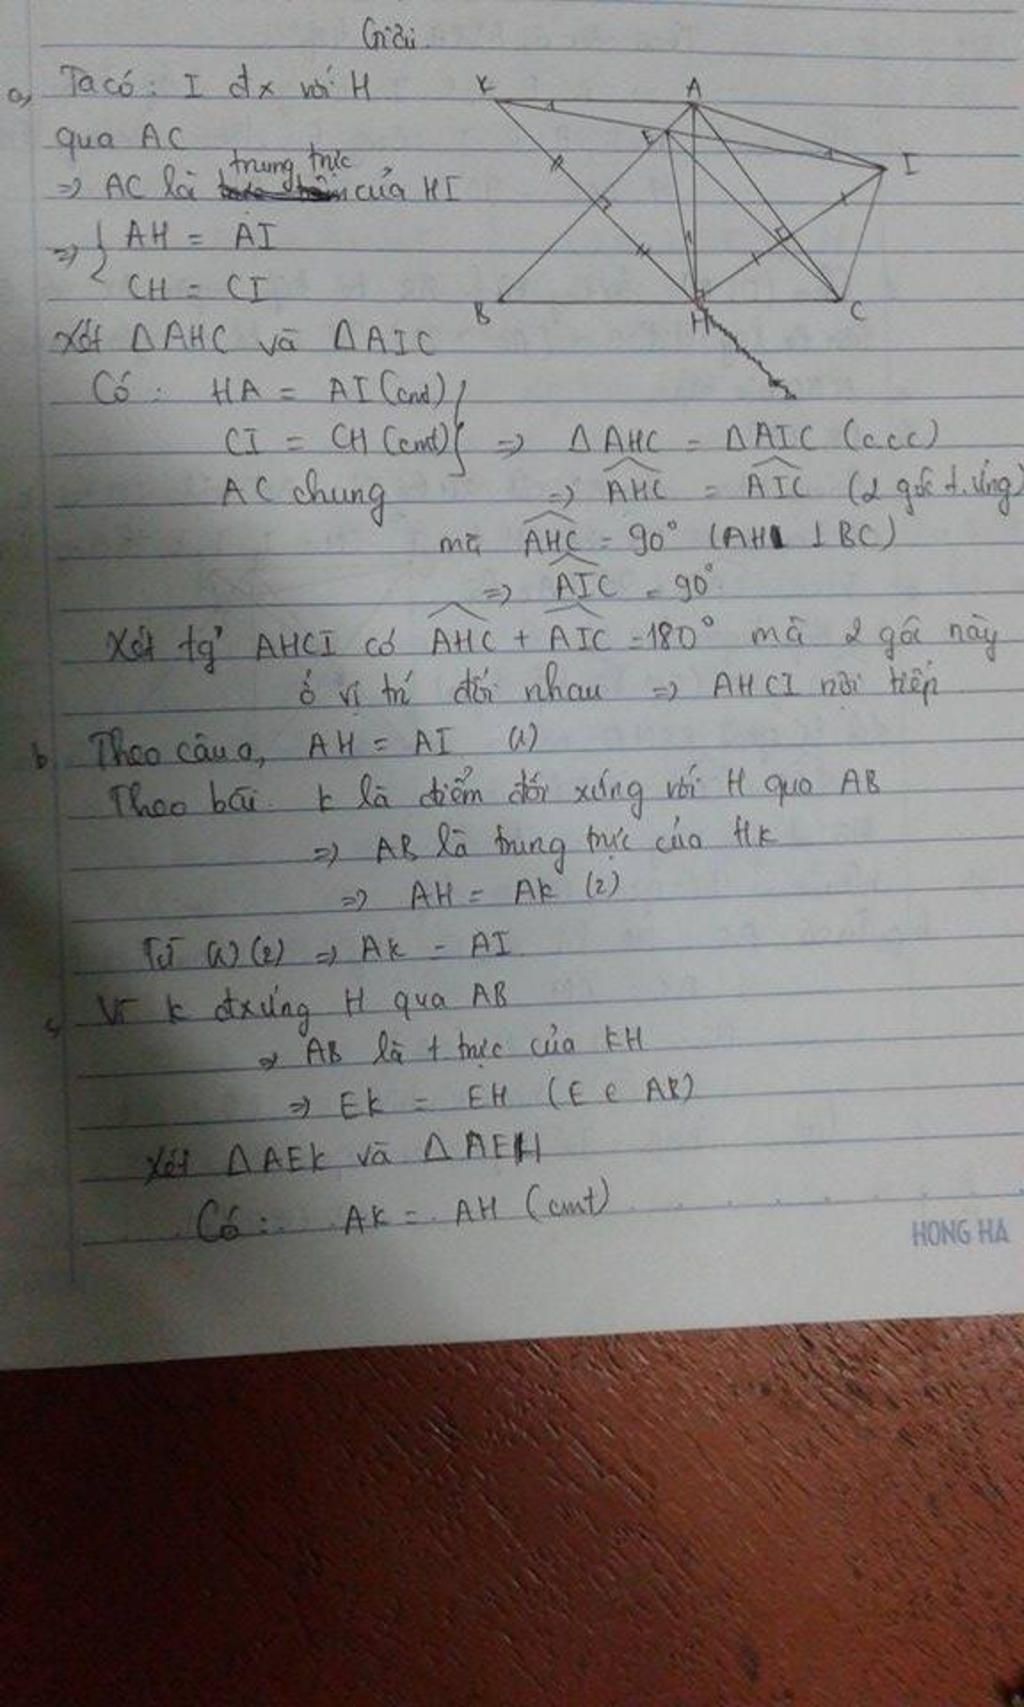 Giải
a, Ta có: I đx với H
qua AC
trung trực
=> AC là của HI
=> { AH = AI
CH = CI
Xét ΔAHC và ΔAIC
Có: HA = AI (cmt)
CI = CH (cmt) } => ΔAHC = ΔAIC (ccc)
AC chung => AHC = AIC (2 góc t.ứng)
mà AHC = 90° (AH ⊥ BC)
=> AIC = 90°
Xét tg AHCI có AHC + AIC = 180° mà 2 góc này
ở vị trí đối nhau => AHCI nội tiếp
b, Theo câu a, AH = AI (1)
Theo bài K là điểm đối xứng với H qua AB
=> AB là trung trực của HK
=> AH = AK (2)
Từ (1) (2) => AK = AI
c, Vì K đxứng H qua AB
=> AB là t trực của KH
=> EK = EH (E ∈ AB)
Xét ΔAEK và ΔAEH
Có: AK = AH (cmt)
K A
E I
B H C
HONG HA